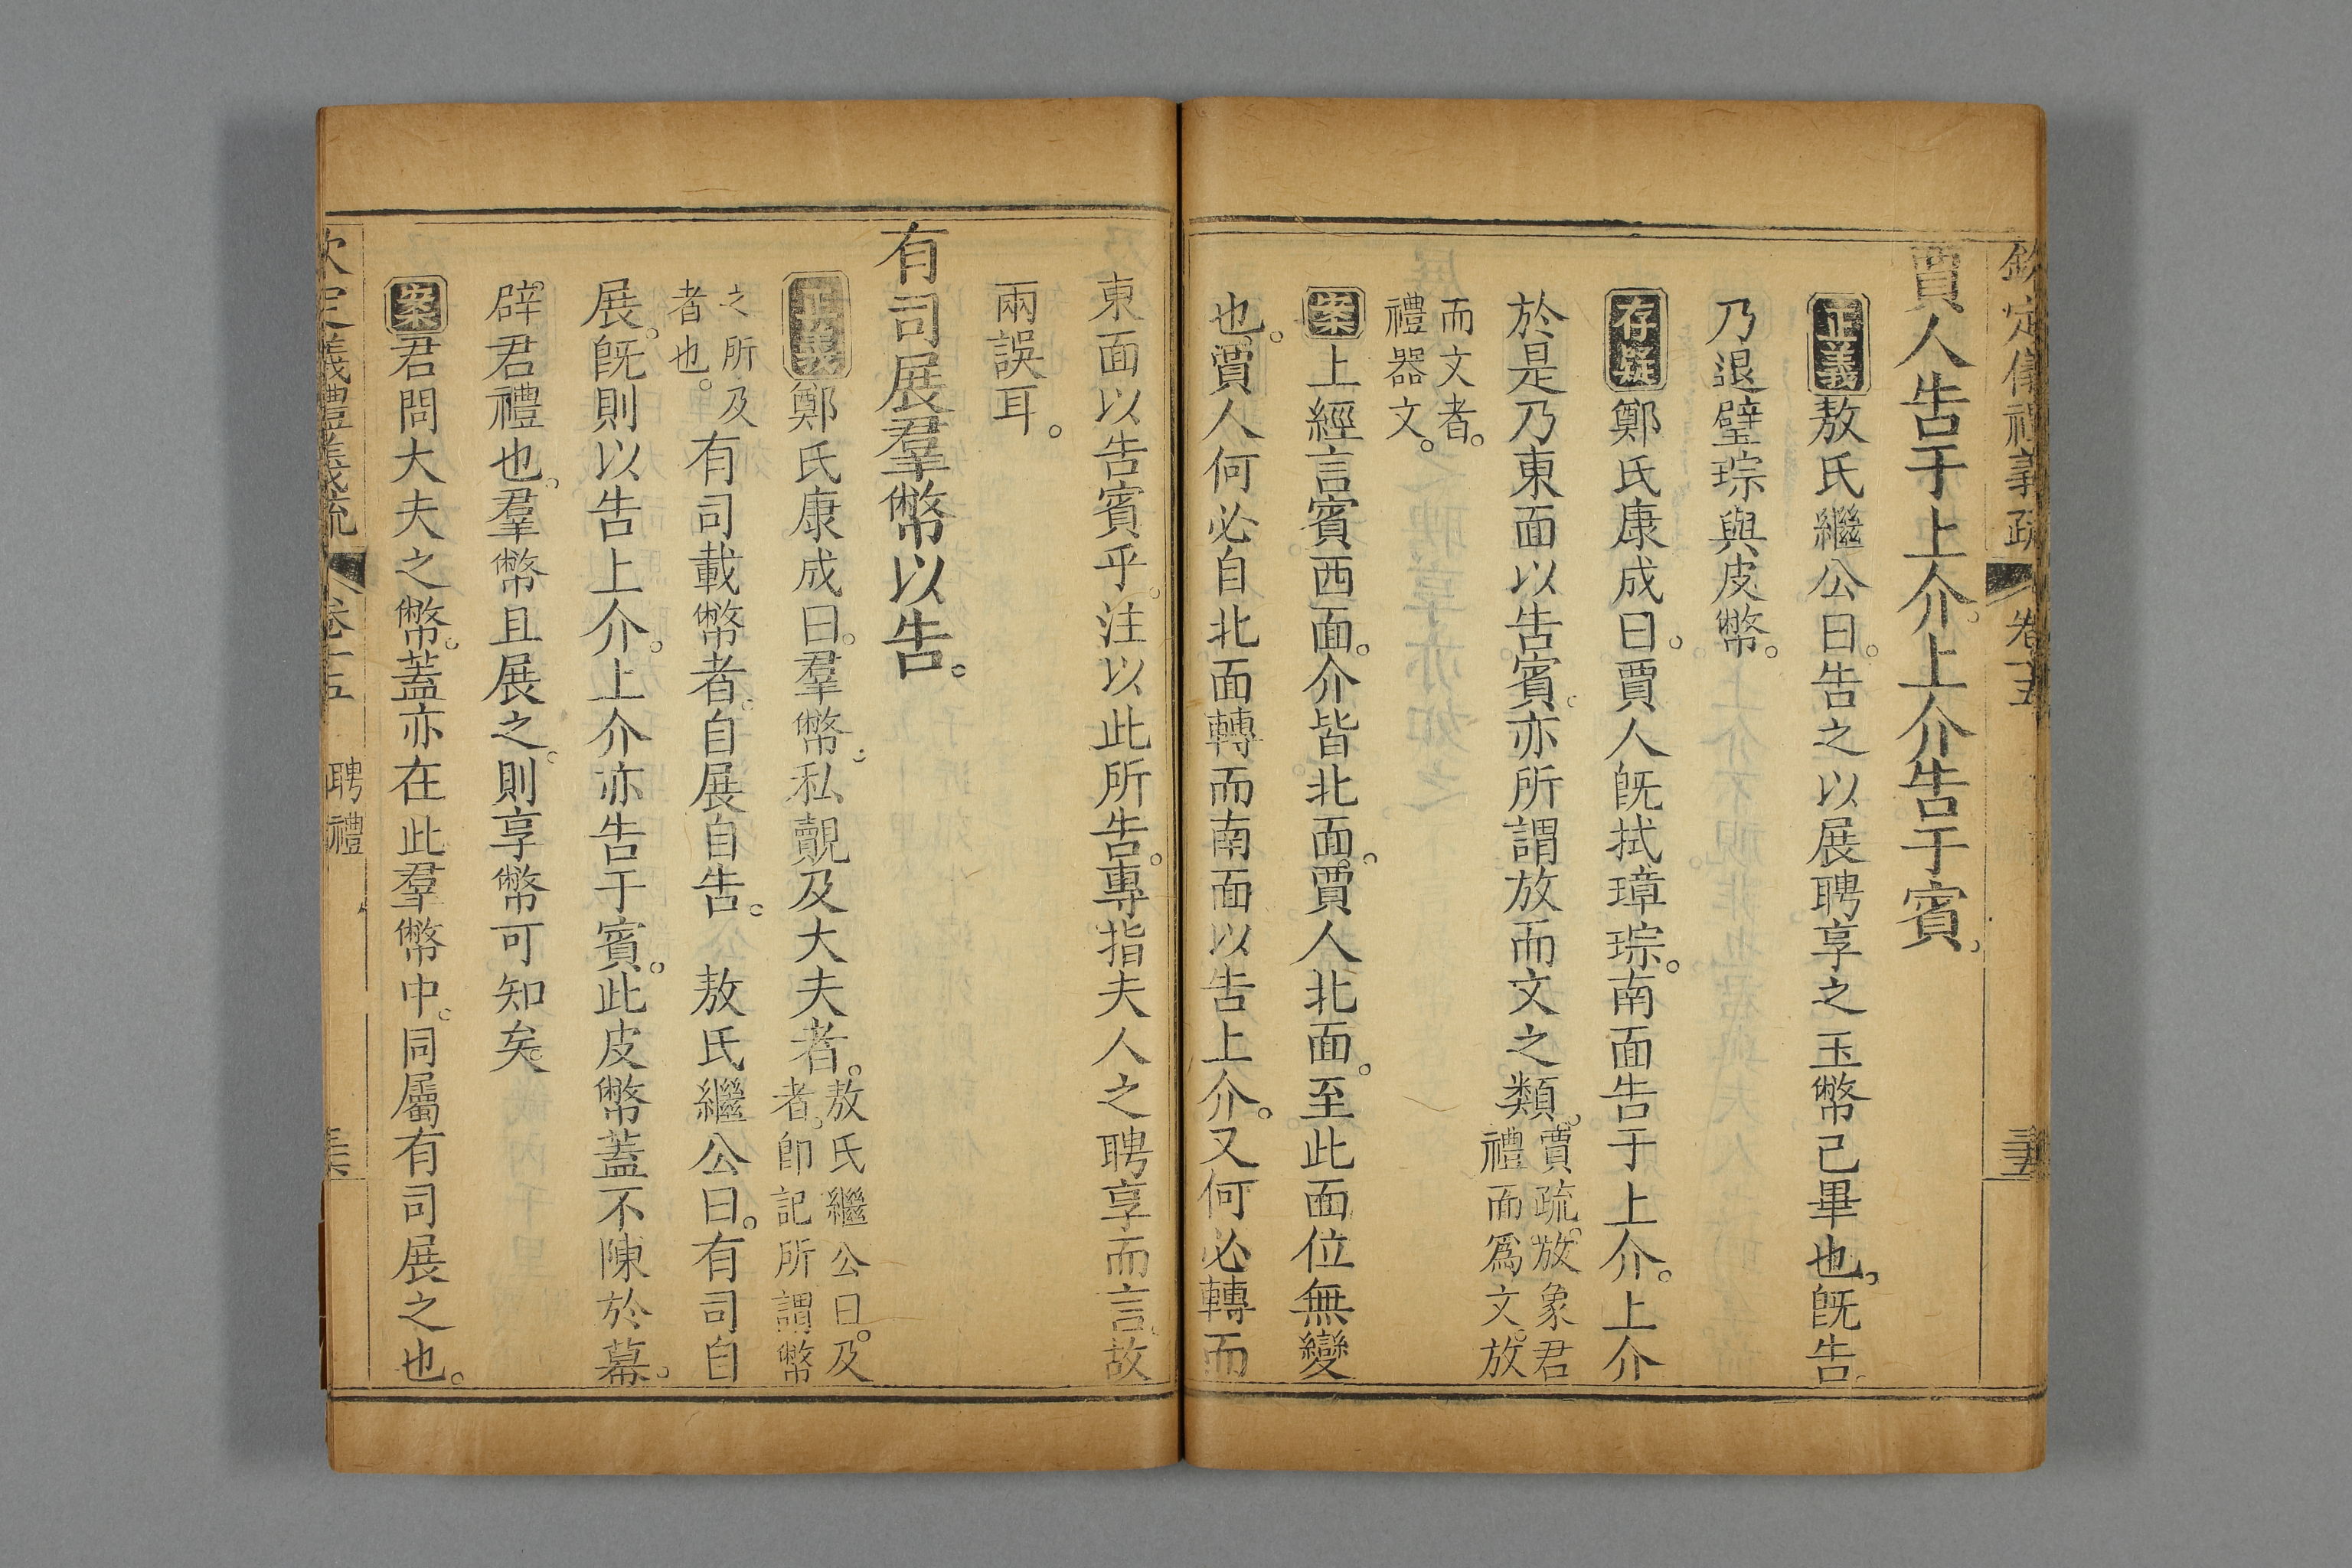 欽定儀禮義疏 卷十五
賈人告于上介。上介告于賓。
正義敖氏繼公曰。告之以展聘享之玉幣已畢也。旣告。
乃退璧琮與皮幣。
存疑鄭氏康成曰。賈人旣拭璋琮。南面告于上介。上介
於是乃東面以告賓。亦所謂放而文之類。賈疏。放象君禮而爲文。放
而文者。禮器文。
案上經言賓西面。介皆北面。賈人北面。至此面位無變
也。賈人何必自北面轉而南面以告上介。又何必轉而
東面以告賓乎。注以此所告。專指夫人之聘享而言。故
兩誤耳。
有司展羣幣以告。
正義鄭氏康成曰。羣幣。私覿及大夫者。敖氏繼公曰。及者。卽記所謂幣
之所及者也。有司載幣者。自展自告。 敖氏繼公曰。有司自
展。旣則以告上介。上介亦告于賓。此皮幣蓋不陳於幕。
辟君禮也。羣幣且展之。則享幣可知矣。
案君問大夫之幣。蓋亦在此羣幣中。同屬有司展之也。
欽定儀禮義疏 卷十五 聘禮